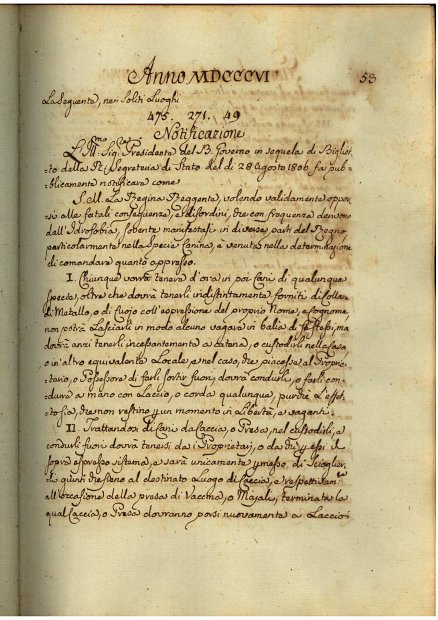 Anno MDCCCVI
53
La Seguente, nei Soliti Luoghi
475. 271. 49
Notificazione
L'Ill.mo Sig.re Presidente del B. Governo in sequela di Bigliet-
to della R. Segreteria di Stato del dì 28 Agosto 1806 fa pub-
blicamente notificare come
S. M. La Regina Reggente, volendo validamente oppor-
si alle fatali conseguenze, e disordini, che con frequenza derivono
dall'Idrofobia, sobente manifestasi in diverse parti del Regno
particolarmente nella Specie Canina, è venuta nella determinazione
di comandare quanto appresso.
I. Chiunque vorrà tenere d'ora in poi Cani di qualunque
specie, oltre che dovrà tenerli indistintamente forniti di Collare
di Metallo, o di Cuojo coll'espressione del proprio Nome, e Cognome
non potrà Lasciarli in modo alcuno vagare in balìa di se stessi, ma
dovrà anzi tenerli incessantemente a catena, o custodirli nella Casa
o in altro equivalente Locale, e nel caso, che piacesse al Proprie-
tario, o Possessore di farli sortir fuori, dovrà condurli, o farli con-
durre a mano con Laccio, o corda qualunque, purchè L'effet-
to sia, che non restino un momento in Libertà, e vaganti.
II. Trattandosi di Cani da Caccia, o Presa, nel custodirli, e
condurli fuori dovrà tenersi da i Proprietarj, o da chi p essi il
sopra espresso sistema, e sarà unicamente pmesso di Scioglier-
li giunti che sieno al destinato Luogo di Caccia, e respettivam.te
all'occasione della presa di Vaccina, o Majale, terminata la
qual Caccia, o Presa dovranno porsi nuovamente a Laccio